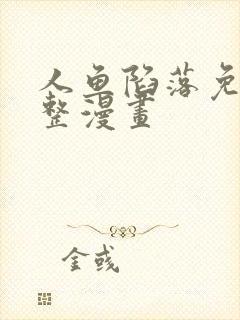 人鱼陷落免
整漫畫
金彧